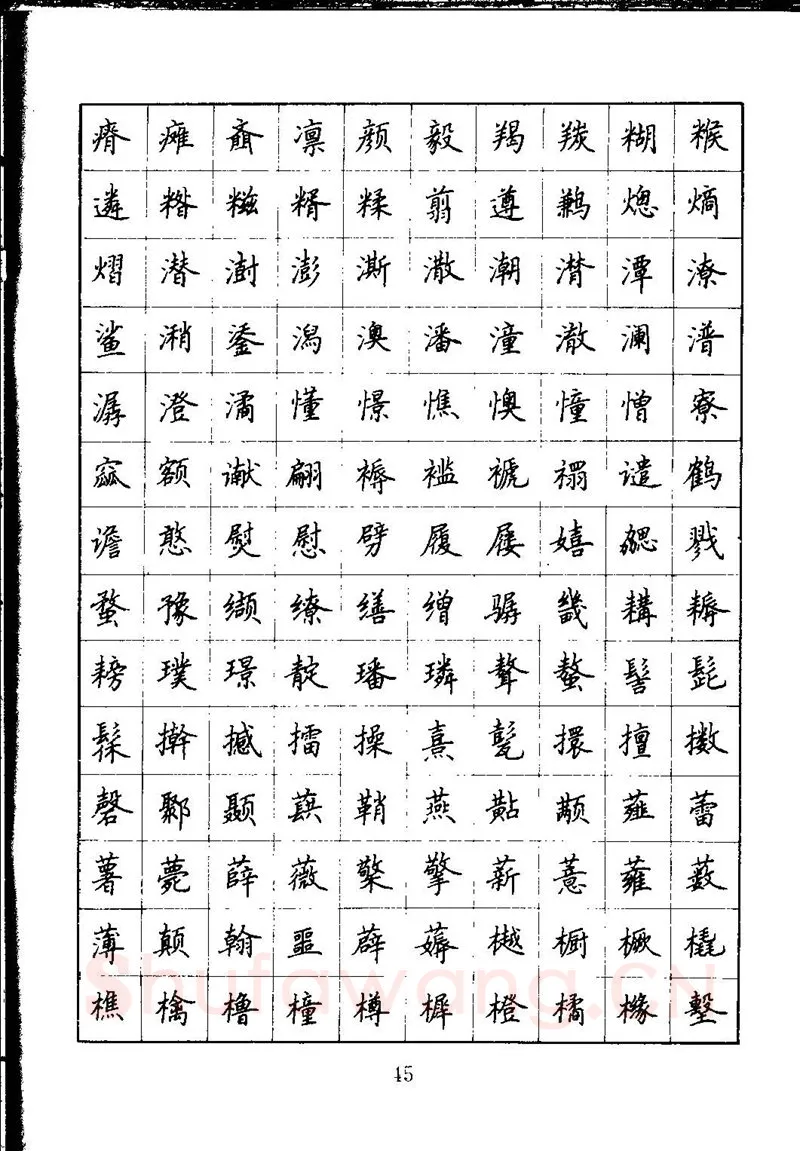 瘠 瘫 齑 凛 颜 毅 羯 羰 糊 糇
遴 糌 糍 糈 糅 翦 遵 鹣 熜 熵
熠 潜 澍 澎 澌 潵 潮 潸 潭 潦
鲨 潲 鋈 潟 澳 潘 潼 澈 澜 潽
潺 澄 潏 懂 憬 憔 懊 憧 憎 寮
窳 额 谳 翩 褥 褴 褫 禤 谴 鹤
谵 憨 熨 慰 劈 履 屦 嬉 勰 戮
蝥 豫 缬 缭 缮 缯 骣 畿 耩 耨
耪 璞 璟 靛 璠 璘 聱 螯 髻 髭
髹 擀 撼 擂 操 熹 甏 擐 擅 擞
磬 鄹 颞 蕻 鞘 燕 黇 颟 薤 蕾
薯 薨 薛 薇 檠 擎 薪 薏 蕹 薮
薄 颠 翰 噩 薜 薅 樾 橱 橛 橇
樵 檎 橹 橦 樽 樨 橙 橘 橼 墼
Shufawang.CN
45